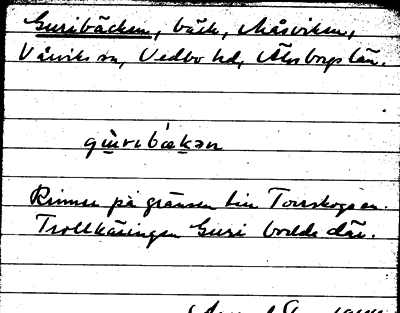 Guribäcken, bäck, Måsviken,
Vårviks sn, Vedbo hd, Älvsborgs län.
gɯ̀rıbǽkən
Rinner på gränsen till Torrskogs sn.
Trollkäringen Guri bodde där.